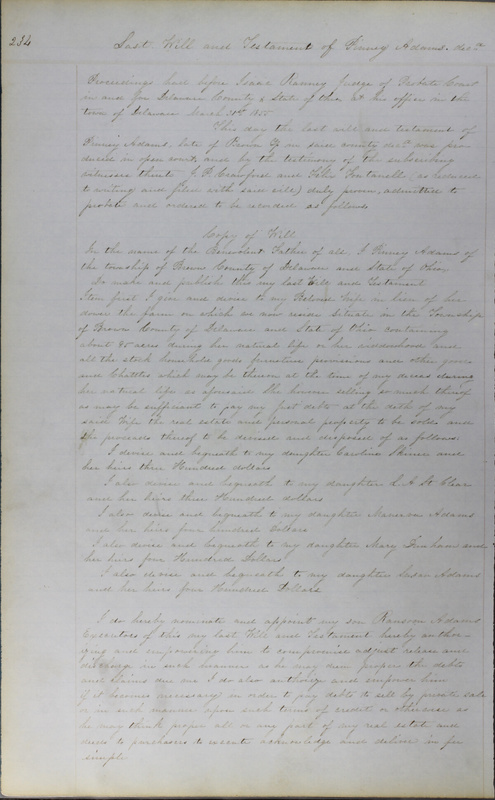 234
Last Will and Testament of Pinney Adams. dec'd
Proceedings had before Isaac Ranney Judge of Probate Court
in and for Delaware County & State of Ohio at his office in the
town of Delaware March 31st 1855
This day the last will and testament of
Pinney Adams, late of Brown Tp in said county dec'd was pro-
duced in open court and by the testimony of the subscribing
witnesses thereto J. P. Crawford and Felix (as reduced
to writing and filed with said will) duly proven, admitted to
probate and ordered to be recorded as follows
Copy of Will
In the name of the Benevolent Father of all. I Pinney Adams of
the township of Brown County of Delaware and State of Ohio
Do make and publish this my last Will and Testament
Item first I give and devise to my Beloved wife in lieu of her
dower the farm on which we now reside situate in the Township
of Brown County of Delaware and State of Ohio containing
about 45 acres during her natural life or her widowhood and
all the stock household goods furniture provisions and other goods
and Chattles which may be thereon at the time of my deceas during
her natural life as aforesaid She however selling so much thereof
as may be sufficient to pay my just debts at the death of my
said wife the real estate and personal property to be sold and
the proceeds thereof to be devised and disposed of as follows.
I devise and bequeath to my daughter Caroline Skinner and
her heirs three Hundred dollars
I also devise and bequeath to my daughter L. A. St Clear
and her heirs three Hundred dollars
I also devise and bequeath to my daughter Adams
and her heirs four hundred dollars
I also devise and bequeath to my daughter Mary and
her heirs four Hundred Dollars
I also devise and bequeath to my daughter Susan Adams
and her heirs four Hundred Dollars
I do hereby nominate and appoint my son Ransom Adams
Executor of this my last Will and Testament hereby author-
izing and empowering him to compromise adjust release and
discharge in such manner as he may deem proper the debts
and claims due me I do also authorize and empower him
if it becomes necessary in order to pay debts to sell by private sale
or in such manner upon such terms of credit or otherwise as
he may think proper all or any part of my real estate and
deeds to purchasers to execute acknowledge and deliver in fee
simple